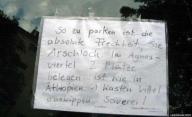 So zu parken ist die
absolute Frechheit Sie
Arschloch im Agnes-
viertel 2 Plätze
belegen ist wie in
Äthiopien 1 Kasten Vittel
auskippen. Sauerei!